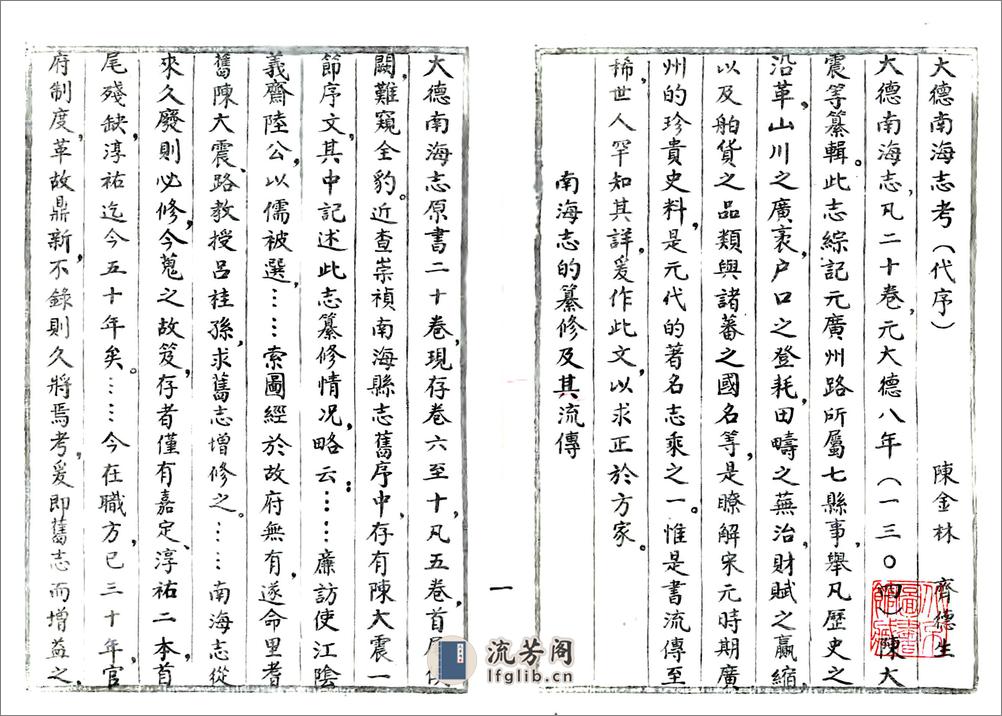 大德南海志考(代序) 陳金林 齊德生
大德南海志,凡二十卷,元大德八年(一三〇四)陳大
震等纂輯。此志綜記元廣州路所屬七縣事,舉凡歷史之
沿革,山川之廣袤,户口之登耗,田疇之蕪治,財賦之贏縮,
以及舶貨之品類與諸蕃之國名等,是瞭解宋元時期廣
州的珍貴史料,是元代的著名志乘之一。惟是書流傳至
稀,世人罕知其詳,爰作此文,以求正於方家。
南海志的纂修及其流傳
大德南海志原書二十卷,現存卷六至十,凡五卷,首尾
闕,難窺全豹。近查崇禎南海縣志舊序中,存有陳大震一
節序文,其中記述此志纂修情况,略云:……廉訪使江陰
義齋陸公,以儒被選,……索圖經於故府無有,遂命里耆
舊陳大震、路教授呂桂孫,求舊志增修之。……南海志從
來久廢則必修,今蒐之故笈,存者僅有嘉定、淳祐二本,首
尾殘缺,淳祐迄今五十年矣。……今在職方,已三十年,官
府制度,革故鼎新,不錄則久將焉考,爰即舊志而增益之,
一
流芳阁
lfglib.cn